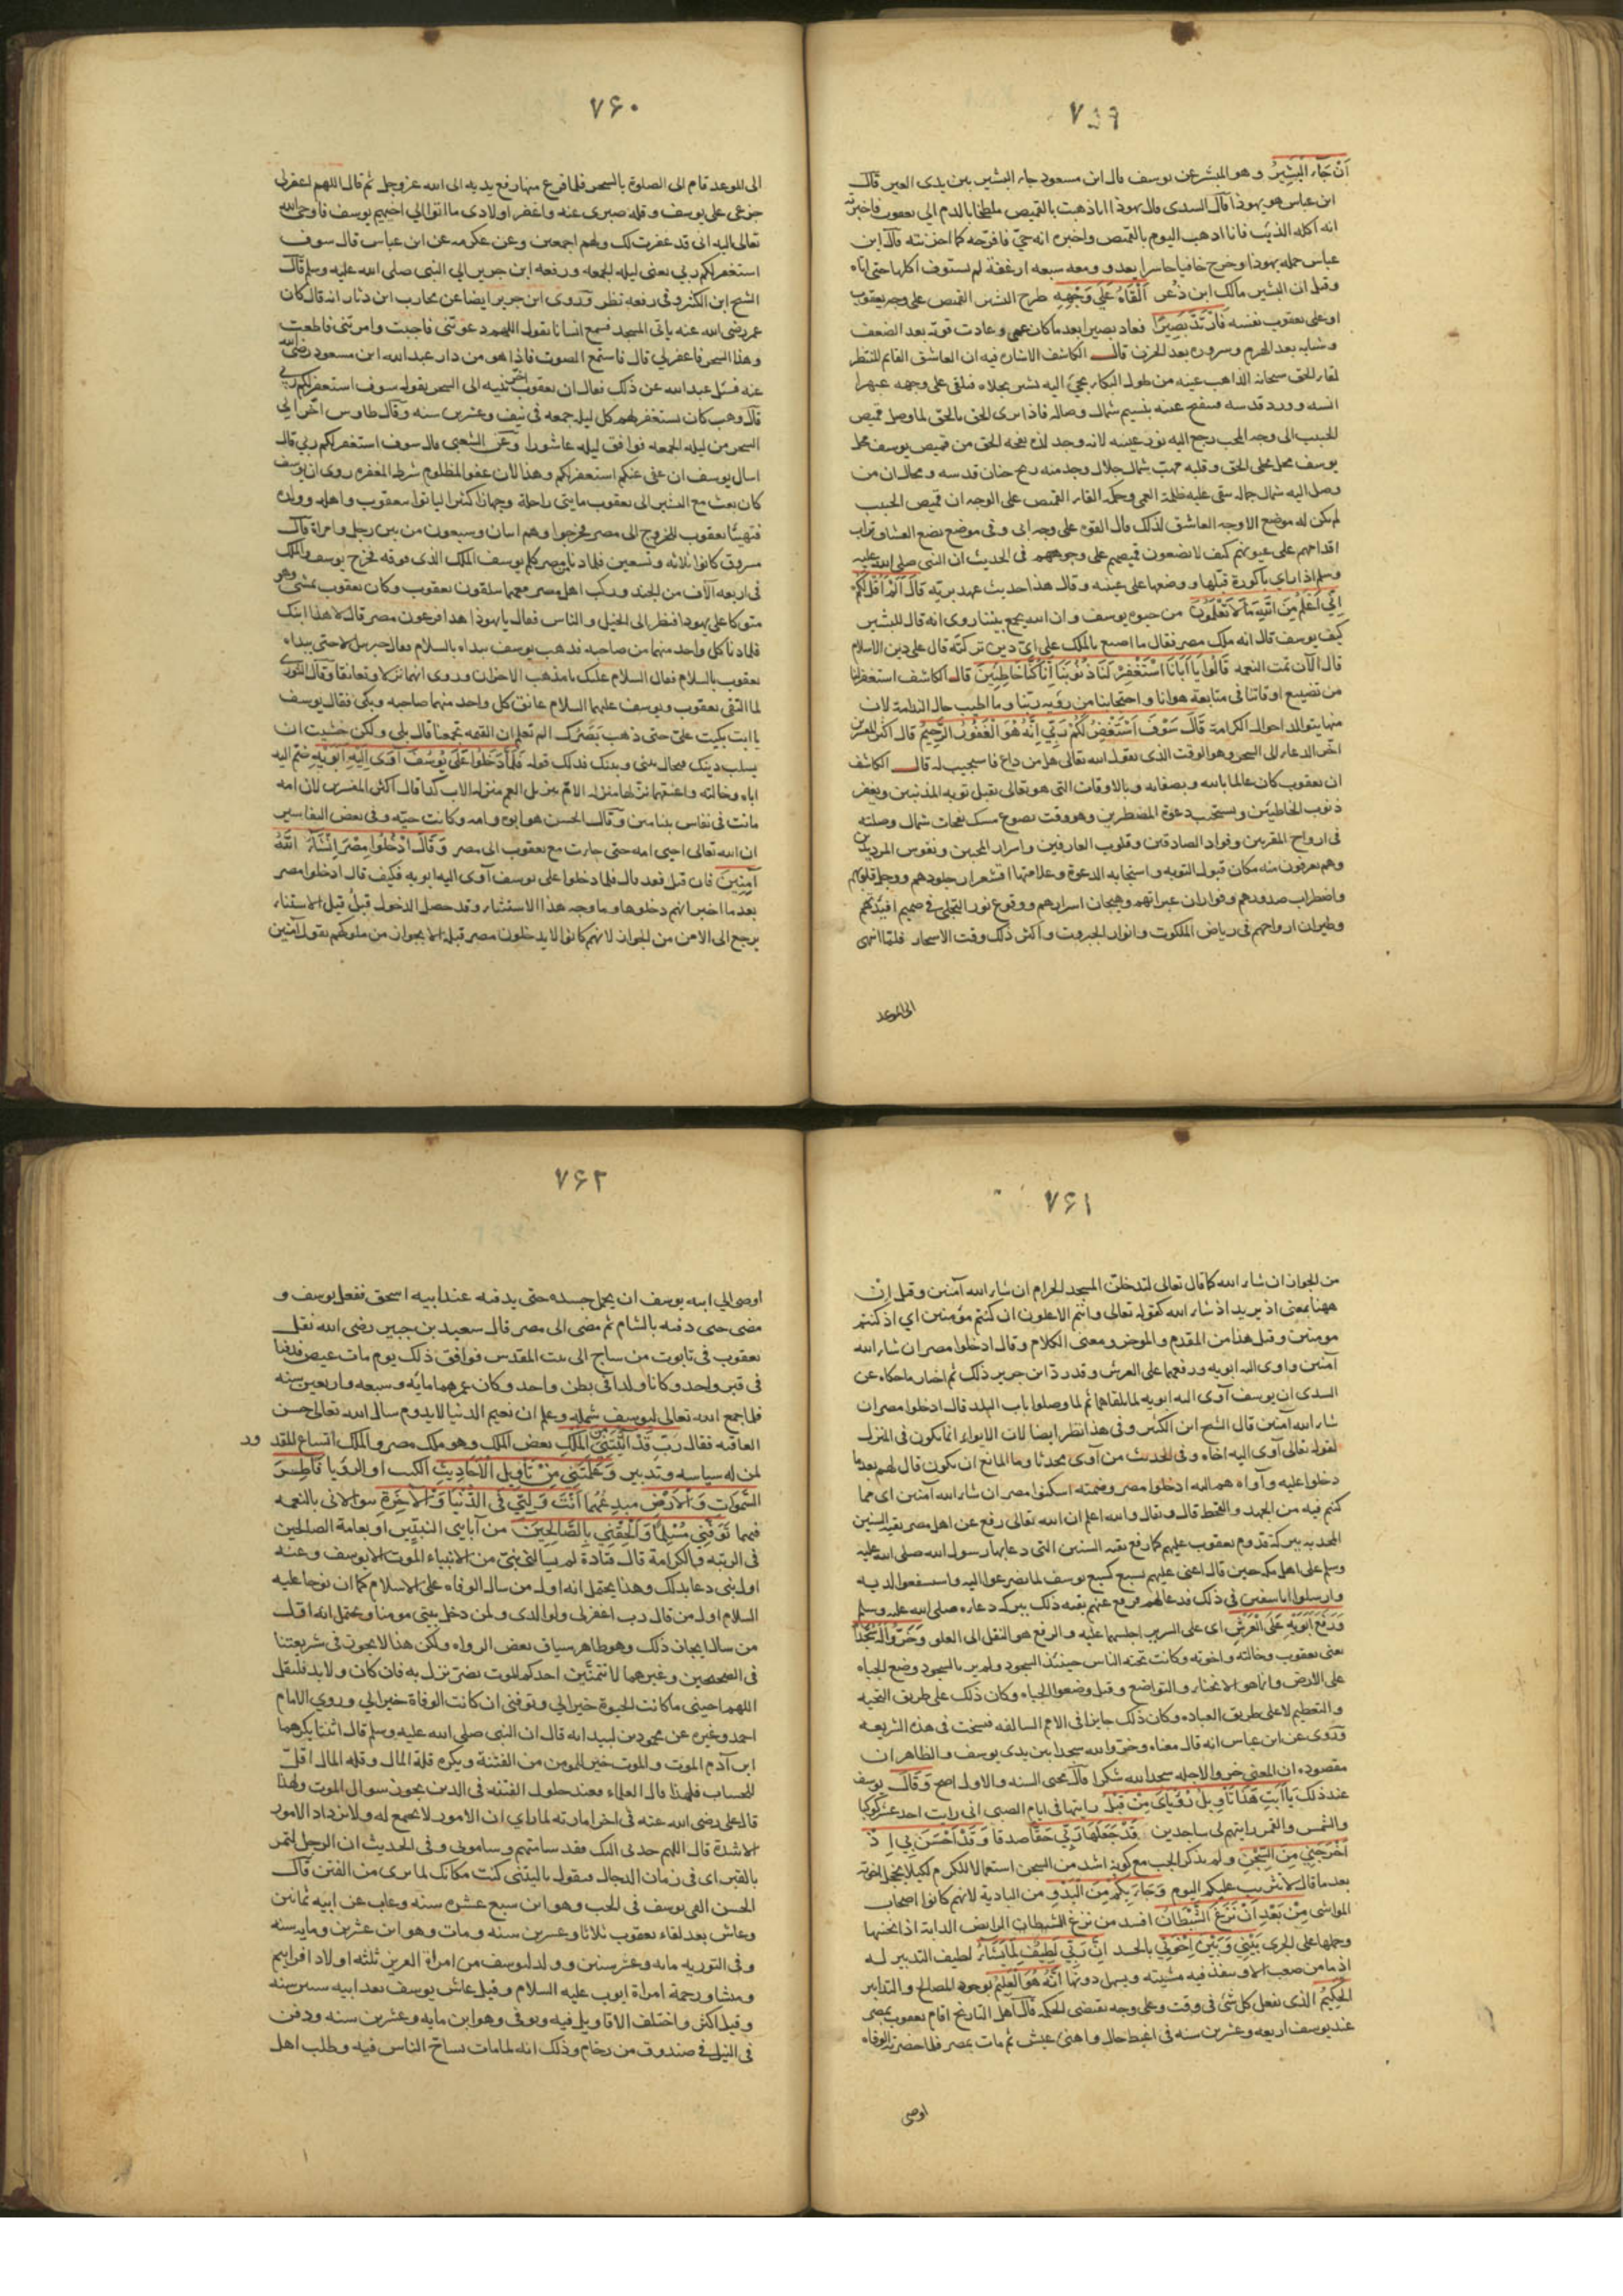 ٧٥٩
أَنْ جَاءَ الْبَشِيرُ وهو المبشر عن يوسف قال ابن مسعود جاء البشير بين يدى العير قال
ابن عباس هو يهوذا قال السدى قال يهوذا انا ذهبت بالقميص ملطخا بالدم الى يعقوب فاخبرته
انه اكله الذيب فانا اذهب اليوم بالقميص واخبره انه حيّ فافرحه كما احزنته قال ابن
عباس حمله يهوذا وخرج حافيا حاسرا يعدو ومعه سبعه ارغفة لم يستوف اكلها حتى اتاه
وقيل ان البشير مالك ابن ذعر أَلْقَاهُ عَلَى وَجْهِهِ طرح البشير القميص على وجه يعقوب
او على يعقوب نفسه فَارْتَدَّ بَصِيرًا فعاد بصيرا بعد ما كان عمى وعادت قوته بعد الضعف
وشبابه بعد الهرم وسروره بعد الحزن قال الكاشف الاشاره فيه ان العاشق القايم المنتظر
لقاء الحق سبحانه الذاهب عينه من طول البكاء يجئ اليه بشير تجلاه فيلقى على وجهه عبهر
انسه وورد قدسه فيفتح عينه بنسيم شمال وصاله فاذا يرى الحق بالحق لما وصل قميص
الحبيب الى وجه المحب رجع اليه نور عينه لانه وجد لذة نفحه الحق من قميص يوسف محل
يوسف محل تجلى الحق وقلبه مهب شمال جلال وجد منه ريح جنان قدسه ومحال ان من
وصل اليه شمال جماله تبقى عليه ظلمة العمى وحكمة القاء القميص على الوجه ان قميص الحبيب
لم يكن له موضع الا وجه العاشق لذلك قال القوه على وجه ابى وفى موضع يضع العشاق تراب
اقدامهم على عيونهم كيف لا يضعون قميصهم على وجوههم فى الحديث ان النبى صلى الله عليه
وسلم اذا راى باكورة قبلها ووضعها على عينيه وقال هذا حديث عهد بربه قَالَ أَلَمْ أَقُلْ لَكُمْ
إِنِّي أَعْلَمُ مِنَ اللَّهِ مَا لَا تَعْلَمُونَ من حيوه يوسف وان الله يجمع بيننا روى انه قال للبشير
كيف يوسف قال انه ملك مصر فقال ما اصنع بالملك على اى دين تركته قال على دين الاسلام
قال الآن تمت النعمه قَالُوا يَا أَبَانَا اسْتَغْفِرْ لَنَا ذُنُوبَنَا إِنَّا كُنَّا خَاطِئِينَ قال الكاشف استغفر لنا
من تضييع اوقاتنا فى متابعة هوانا واحتجابنا من رؤيه ربنا وما اطيب حال الندامة لان
منها يتولد احوال الكرامة قَالَ سَوْفَ أَسْتَغْفِرُ لَكُمْ رَبِّي إِنَّهُ هُوَ الْغَفُورُ الرَّحِيمُ قال اكثر المفسرين
اخر الدعاء الى السحر وهو الوقت الذى يقول الله تعالى هل من داع فاستجيب له قال الكاشف
ان يعقوب كان عالما بالله وبصفاته وبالاوقات التى هو تعالى يقبل توبه المذنبين ويغفر
ذنوب الخاطئين ويستجيب دعوة المضطرين وهو وقت يضوع مسك نفحات شمال وصلته
فى ارواح المقربين وفواد الصادقين وقلوب العارفين واسرار المحبين ونفوس المريدين
وهم يعرفون منه مكان قبول التوبه واستجابه الدعوة وعلامتها اقشعرار جلودهم ووجل قلوبهم
واضطراب صدورهم وفوران عبراتهم وهيجان اسرارهم ووقوع نور التجلى فى صميم افئدتهم
وطيران ارواحهم فى رياض الملكوت وانوار الجبروت واكثر ذلك وقت الاسحار فلما انتهى
الى الموعد
٧۶٠
الى الموعد قام الى الصلوة بالسحر فلما فرغ منها رفع يديه الى الله عز وجل ثم قال اللهم اغفر لى
جزعى على يوسف وقلة صبرى عنه واغفر لاولادى ما اتوا الى اخيهم يوسف فاوحى الله
تعالى اليه انى قد غفرت لك ولهم اجمعين وعن عكرمه عن ابن عباس قال سوف
استغفر لكم ربى يعنى ليله الجمعه ورفعه ابن جرير الى النبى صلى الله عليه وسلم قال
الشيخ ابن الكثير وفى رفعه نظر وروى ابن جرير ايضا عن محارب ابن دثار انه قال كان
عمر رضى الله عنه ياتى المسجد فسمع انسانا يقول اللهم دعوتنى فاجبت وامرتنى فاطعت
وهذا السحر فاغفر لى قال فاستمع الصوت فاذا هو من دار عبد الله ابن مسعود رضى الله
عنه فسئل عبد الله عن ذلك فقال ان يعقوب اخر بنيه الى السحر بقوله سوف استغفر لكم ربى
قال وهب كان يستغفر لهم كل ليله جمعه فى نيف وعشرين سنه وقال طاوس اخر الى
السحر من ليله الجمعه فوافق ليله عاشورا وعن الشعبى قال سوف استغفر لكم ربى قال
اسال يوسف ان عفى عنكم استغفر لكم وهذا لان عفو المظلوم شرط المغفره روى ان يوسف
كان بعث مع البشير الى يعقوب مايتى راحلة وجهازا كثيرا لياتوا بيعقوب واهله وولده
فتهيئا يعقوب للخروج الى مصر فخرجوا وهم اثنان وسبعون من بين رجل وامراة قال
مسروق كانوا ثلاثه وتسعين فلما دنا من مصر كلم يوسف الملك الذى فوقه فخرج يوسف والملك
فى اربعه آلاف من الجند وركب اهل مصر معهما يتلقون يعقوب وكان يعقوب يمشى وهو
متوكا على يهوذا فنظر الى الخيل والناس فقال يا يهوذا هذا فرعون مصر قال لا هذا ابنك
فلما دنا كل واحد منهما من صاحبه فذهب يوسف يبداه بالسلام فقال جبريل لا حتى يبداه
يعقوب بالسلام فقال السلام عليك يا مذهب الاحزان وروى انهما نزلا وتعانقا وقال الثورى
لما التقى يعقوب ويوسف عليهما السلام عانق كل واحد منهما صاحبه وبكى فقال يوسف
يا ابت بكيت على حتى ذهب بصرك الم تعلم ان القيمه تجمعنا قال بلى ولكن خشيت ان
يسلب دينك فيحال بينى وبينك فذلك قوله فَلَمَّا دَخَلُوا عَلَى يُوسُفَ آوَى إِلَيْهِ أَبَوَيْهِ ضم اليه
اباه وخالته واعتنقهما نزلها منزله الام تنزيل العم منزله الاب كذا قال اكثر المفسرين لان امه
ماتت فى نفاس بنيامين وقال الحسن هو ابوه وامه وكانت حيّه وفى بعض التفاسير
ان الله تعالى احيى امه حتى جاءت مع يعقوب الى مصر وَقَالَ ادْخُلُوا مِصْرَ إِنْ شَاءَ اللَّهُ
آمِنِينَ فان قيل فقد قال فلما دخلوا على يوسف آوى اليه ابويه فكيف قال ادخلوا مصر
بعد ما اخبر انهم دخلوها وما وجه هذا الاستثناء وقد حصل الدخول قبل قيل الاستثناء
يرجع الى الامن من الجواز لانهم كانوا لا يدخلون مصر قبله الا بجواز من ملوكهم يقول آمنين
٧۶١
من الجواز ان شاء الله كما قال تعالى لتدخلن المسجد الحرام ان شاء الله آمنين وقيل ان
ههنا بمعنى اذ يريد اذ شاء الله كقوله تعالى وانتم الاعلون ان كنتم مؤمنين اى اذ كنتم
مومنين وقيل هذا من المقدم والموخر ومعنى الكلام وقال ادخلوا مصر ان شاء الله
آمنين واوى اليه ابويه ورفعهما على العرش وقد رد ابن جرير ذلك ثم اختار ما حكاه عن
السدى ان يوسف آوى اليه ابويه لما تلقاهما ثم لما وصلوا باب البلد قال ادخلوا مصر ان
شاء الله آمنين قال الشيخ ابن الكثير وفى هذا نظر ايضا لان الايواء انما يكون فى المنزل
لقوله تعالى آوى اليه اخاه وفى الحديث من آوى محدثا وما المانع ان يكون قال لهم بعد ما
دخلوا عليه وآواهم اليه ادخلوا مصر وضمنه اسكنوا مصر ان شاء الله آمنين اى مما
كنتم فيه من الجهد والقحط قال ويقال والله اعلم ان الله تعالى رفع عن اهل مصر بقيه السنين
المجدبه ببركة قدوم يعقوب عليهم كما رفع بقيه السنين التى دعا بها رسول الله صلى الله عليه
وسلم على اهل مكه حين قال اعنى عليهم بسبع كسبع يوسف لما تضرعوا اليه واستشفعوا لديه
وارسلوا ابا سفين فى ذلك فدعا لهم فرفع عنهم بقيه ذلك ببركه دعاءه صلى الله عليه وسلم
وَرَفَعَ أَبَوَيْهِ عَلَى الْعَرْشِ اى على السرير اجلسهما عليه والرفع هو النقل الى العلو وَخَرُّوا لَهُ سُجَّدًا
يعنى يعقوب وخالته واخوته وكانت تحيه الناس حينئذ السجود ولم يرد بالسجود وضع الجباه
على الارض وانما هو الانحناء والتواضع وقيل وضعوا الجباه وكان ذلك على طريق التحيه
والتعظيم لا على طريق العباده وكان ذلك جايزا فى الامم السالفه فنسخت فى هذه الشريعه
وروى عن ابن عباس انه قال معناه وخروا لله سجدا بين يدى يوسف والظاهر ان
مقصوده ان المعنى خروا لاجله سجدا لله شكرا قال محيى السنه والاول اصح وَقَالَ يوسف
عند ذلك يَا أَبَتِ هَذَا تَأْوِيلُ رُؤْيَايَ مِنْ قَبْلُ رايتها فى ايام الصبى انى رايت احد عشر كوكبا
والشمس والقمر رايتهم لى ساجدين قَدْ جَعَلَهَا رَبِّي حَقًّا صدقا وَقَدْ أَحْسَنَ بِي إِذْ
أَخْرَجَنِي مِنَ السِّجْنِ ولم يذكر الجب مع كونه اشد من السجن استعمالا للكرم لكيلا يخجل اخوته
بعد ما قال لا تثريب عليكم اليوم وَجَاءَ بِكُمْ مِنَ الْبَدْوِ من البادية لانهم كانوا اصحاب
المواشى مِنْ بَعْدِ أَنْ نَزَغَ الشَّيْطَانُ افسد من نزغ الشيطان الرايض الدابه اذا نخسها
وحملها على الجرى بَيْنِي وَبَيْنَ إِخْوَتِي بالحسد إِنَّ رَبِّي لَطِيفٌ لِمَا يَشَاءُ لطيف التدبير له
اذ ما من صعب الا وينفذ فيه مشيته ويسهل دونها إِنَّهُ هُوَ الْعَلِيمُ بوجوه المصالح والتدابير
الْحَكِيمُ الذى يفعل كل شئ فى وقت وعلى وجه يقتضى الحكمه قال اهل التاريخ اقام يعقوب بمصر
عند يوسف اربعه وعشرين سنه فى اغبط حال واهنئ عيش ثم مات بمصر فلما حضرته الوفاه
اوصى
٧۶٢
اوصى الى ابنه يوسف ان يحمل جسده حتى يدفنه عند ابيه اسحق ففعل يوسف و
مضى حتى دفنه بالشام ثم مضى الى مصر قال سعيد بن جبير رضى الله نقل
يعقوب فى تابوت من ساج الى بيت المقدس فوافق ذلك يوم مات عيص فدفنا
فى قبر واحد وكانا ولدا فى بطن واحد وكان عمرهما مايه وسبعه واربعين سنه
فلما جمع الله تعالى ليوسف شمله وعلم ان نعيم الدنيا لا يدوم سال الله تعالى حسن
العاقبه فقال رَبِّ قَدْ آتَيْتَنِي مِنَ الْمُلْكِ بعض الملك وهو ملك مصر والملك اتساع المقد ور
لمن له سياسه وتدبير وَعَلَّمْتَنِي مِنْ تَأْوِيلِ الْأَحَادِيثِ الكتب او الرؤيا فَاطِرَ
السَّمَوَاتِ وَالْأَرْضِ مبدعهما أَنْتَ وَلِيِّي فِي الدُّنْيَا وَالْآخِرَةِ تتولانى بالنعمه
فيهما تَوَفَّنِي مُسْلِمًا وَأَلْحِقْنِي بِالصَّالِحِينَ من آبايى النبيين او بعامة الصالحين
فى الرتبه والكرامة قال قتادة لم يسال نبى من الانبياء الموت الا يوسف وعنه
اول نبى دعا بذلك وهذا يحتمل انه اول من سال الوفاه على الاسلام كما ان نوحا عليه
السلام اول من قال رب اغفر لى ولوالدى ولمن دخل بيتى مومنا ويحتمل انه اول
من سال انجاز ذلك وهو ظاهر سياق بعض الرواه ولكن هذا لا يجوز فى شريعتنا
فى الصحيحين وغيرهما لا يتمنين احدكم الموت لضر نزل به فان كان ولا بد فليقل
اللهم احينى ما كانت الحيوة خيرا لى وتوفنى ان كانت الوفاة خيرا لى وروى الامام
احمد وغيره عن محمود بن لبيد انه قال ان النبى صلى الله عليه وسلم قال اثنتان يكرهما
ابن آدم الموت والموت خير للمومن من الفتنة ويكره قلة المال وقله المال اقل
للحساب فلهذا قال العلماء فعند حلول الفتنه فى الدين يجوز سوال الموت ولهذا
قال على رضى الله عنه فى اخر امارته لما راى ان الامور لا تجتمع له ولا يزداد الامور
الا شدة قال اللهم خذنى اليك فقد سامتهم وسامونى وفى الحديث ان الرجل ليمر
بالقبر اى فى زمان الدجال فيقول يا ليتنى كنت مكانك لما يرى من الفتن قال
الحسن القى يوسف فى الجب وهو ابن سبع عشره سنه وغاب عن ابيه ثمانين
وعاش بعد لقاء يعقوب ثلاثا وعشرين سنه ومات وهو ابن عشرين ومايه سنه
وفى التوريه مايه وعشر سنين وولد ليوسف من امراة العزيز ثلثه اولاد افراييم
وميشا ورحمة امراة ايوب عليه السلام وقيل عاش يوسف بعد ابيه ستين سنه
وقيل اكثر واختلف الاقاويل فيه وتوفى وهو ابن مايه وعشرين سنه ودفن
فى النيل فى صندوق من رخام وذلك انه لما مات تشاح الناس فيه وطلب اهل